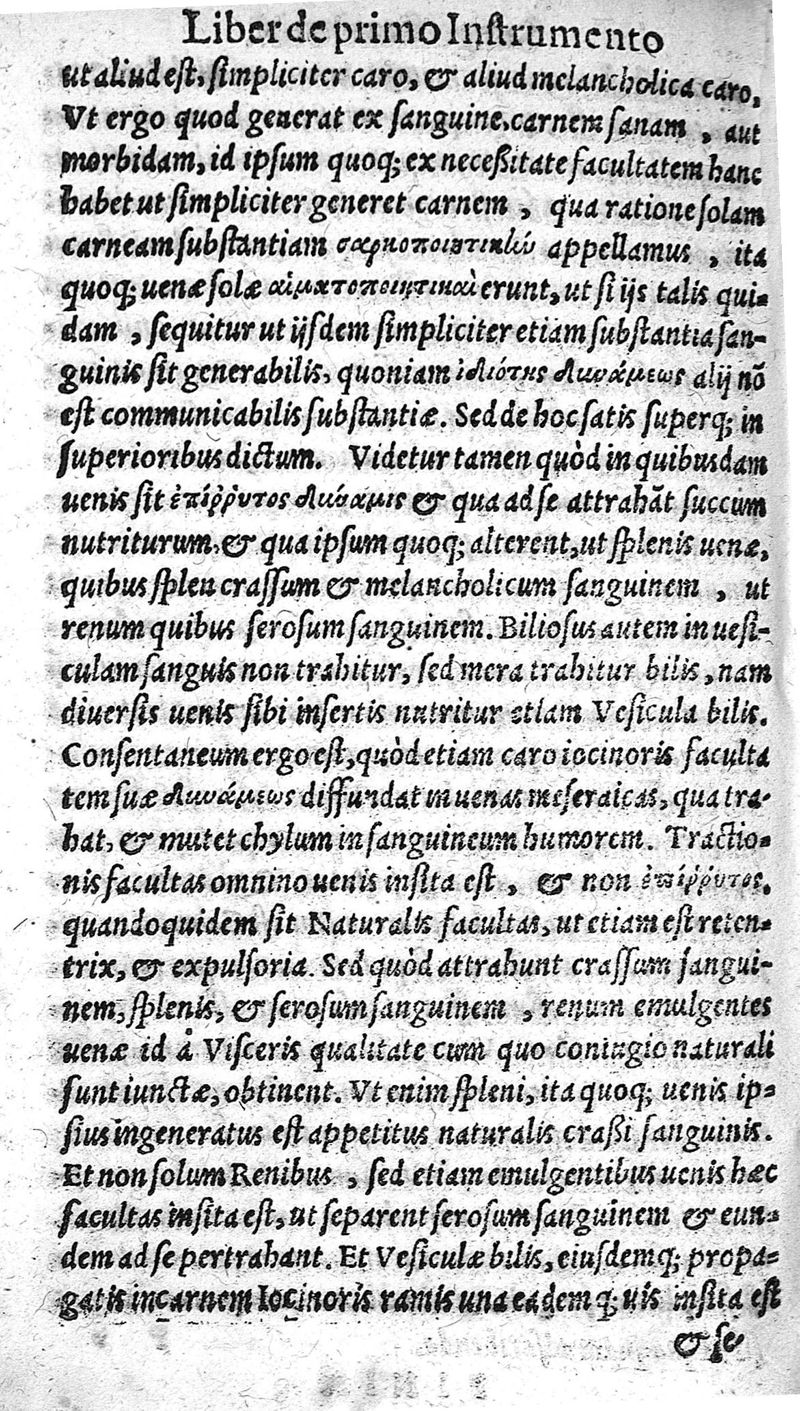 Liber de primo Instrumento
ut aliud est, simpliciter caro, & aliud melancholica caro,
Vt ergo quod generat ex sanguine, carnem sanam, aut
morbidam, id ipsum quoq; ex neceßitate facultatem hanc
habet ut simpliciter generet carnem, qua ratione solam
carneam substantiam σαρκοποιητικὴν appellamus, ita
quoq; uenæ solæ αἱματοποιητικαὶ erunt, ut si ijs talis qui-
dam, sequitur ut ijsdem simpliciter etiam substantia san-
guinis sit generabilis, quoniam ἰδιότης δυνάμεως alij nõ
est communicabilis substantiæ. Sed de hoc satis superq; in
superioribus dictum. Videtur tamen quòd in quibusdam
uenis sit ἐπίῤῥυτος δύναμις & qua ad se attrahãt succum
nutriturum, & qua ipsum quoq; alterent, ut splenis uenæ,
quibus splen crassum & melancholicum sanguinem, ut
renum quibus serosum sanguinem. Biliosus autem in uesi-
culam sanguis non trahitur, sed mera trahitur bilis, nam
diuersis uenis sibi insertis nutritur etiam Vesicula bilis.
Consentaneum ergo est, quòd etiam caro iocinoris faculta
tem suæ δυνάμεως diffundat in uenas meseraicas, qua tra-
hat, & mutet chylum in sanguineum humorem. Tractio-
nis facultas omnino uenis insita est, & non ἐπίῤῥυτος,
quandoquidem sit Naturalis facultas, ut etiam est reten-
trix, & expulsoria. Sed quòd attrahunt crassum sangui-
nem, splenis, & serosum sanguinem, renum emulgentes
uenæ id à Visceris qualitate cum quo coniugio naturali
sunt iunctæ, obtinent. Vt enim spleni, ita quoq; uenis ip-
sius ingeneratus est appetitus naturalis craßi sanguinis.
Et non solum Renibus, sed etiam emulgentibus uenis hæc
facultas insita est, ut separent serosum sanguinem & eun-
dem ad se pertrahant. Et Vesiculæ bilis, eiusdemq; propa-
gatis in carnem Iocinoris ramis una eademq; uis insita est
& se